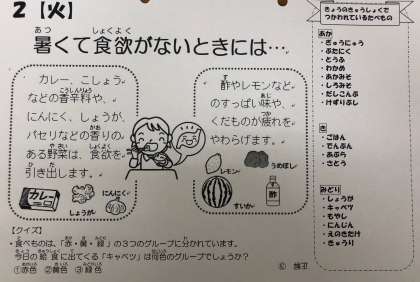 2【火】
暑くて食欲がないときには…
カレー、こしょう
などの香辛料や、
にんにく、しょうが、
パセリなどの香りの
ある野菜は、食欲を
引き出します。
カレー
しょうが
にんにく
酢やレモンなど
のすっぱい味や、
くだものが疲れを
やわらげます。
レモン
うめぼし
すいか
酢
【クイズ】
・食べものは、「赤・黄・緑」の3つのグループに分かれています。
今日の給食に出てくる「キャベツ」は何色のグループでしょうか？
①赤色 ②黄色 ③緑色
きょうのきゅうしょくで
つかわれているたべもの
あか
・ぎゅうにゅう
・ぶたにく
・とうふ
・わかめ
・あかみそ
・しろみそ
・だしこんぶ
・けずりぶし
き
・ごはん
・でんぷん
・あぶら
・さとう
みどり
・しょうが
・キャベツ
・もやし
・にんじん
・えのきたけ
・きゅうり